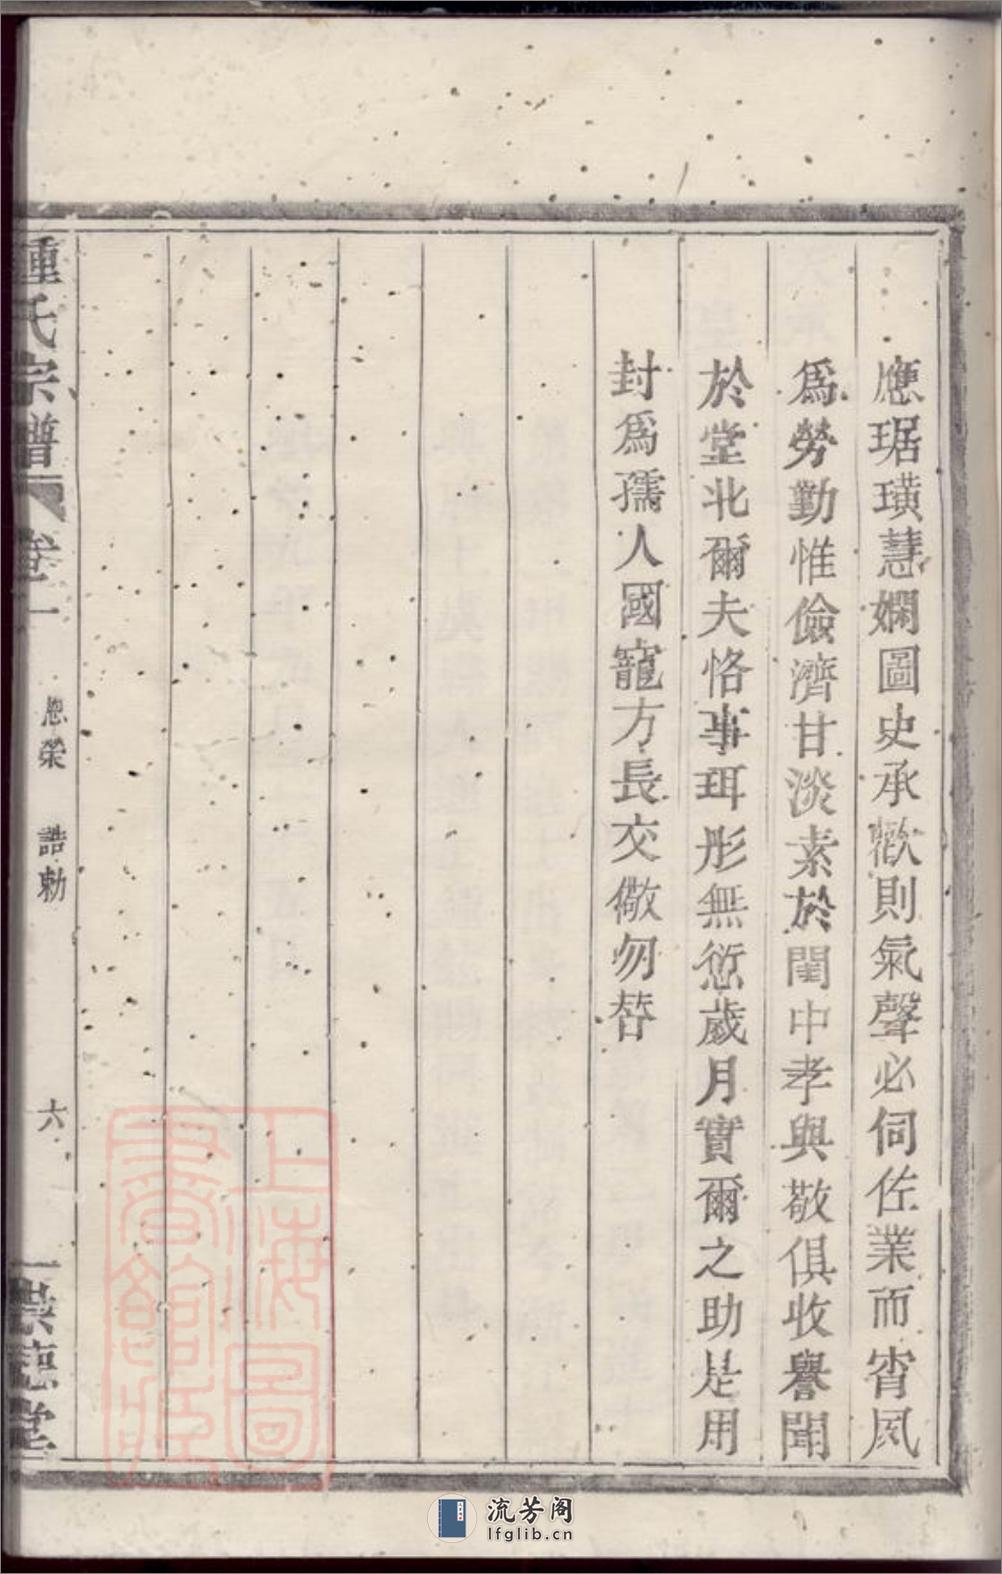 應琚璜慧嫻圖史承歡則氣聲必伺佐業而宵夙
爲勞勤惟儉濟甘淡素於閨中孝與敬俱收譽聞
於堂北爾夫恪事珥彤無愆歲月實爾之助是用
封爲孺人國寵方長交儆勿替
氏宗譜
卷一
恩榮 誥勅
六
德堂
上海圖書館藏
流芳阁
lfglib.cn